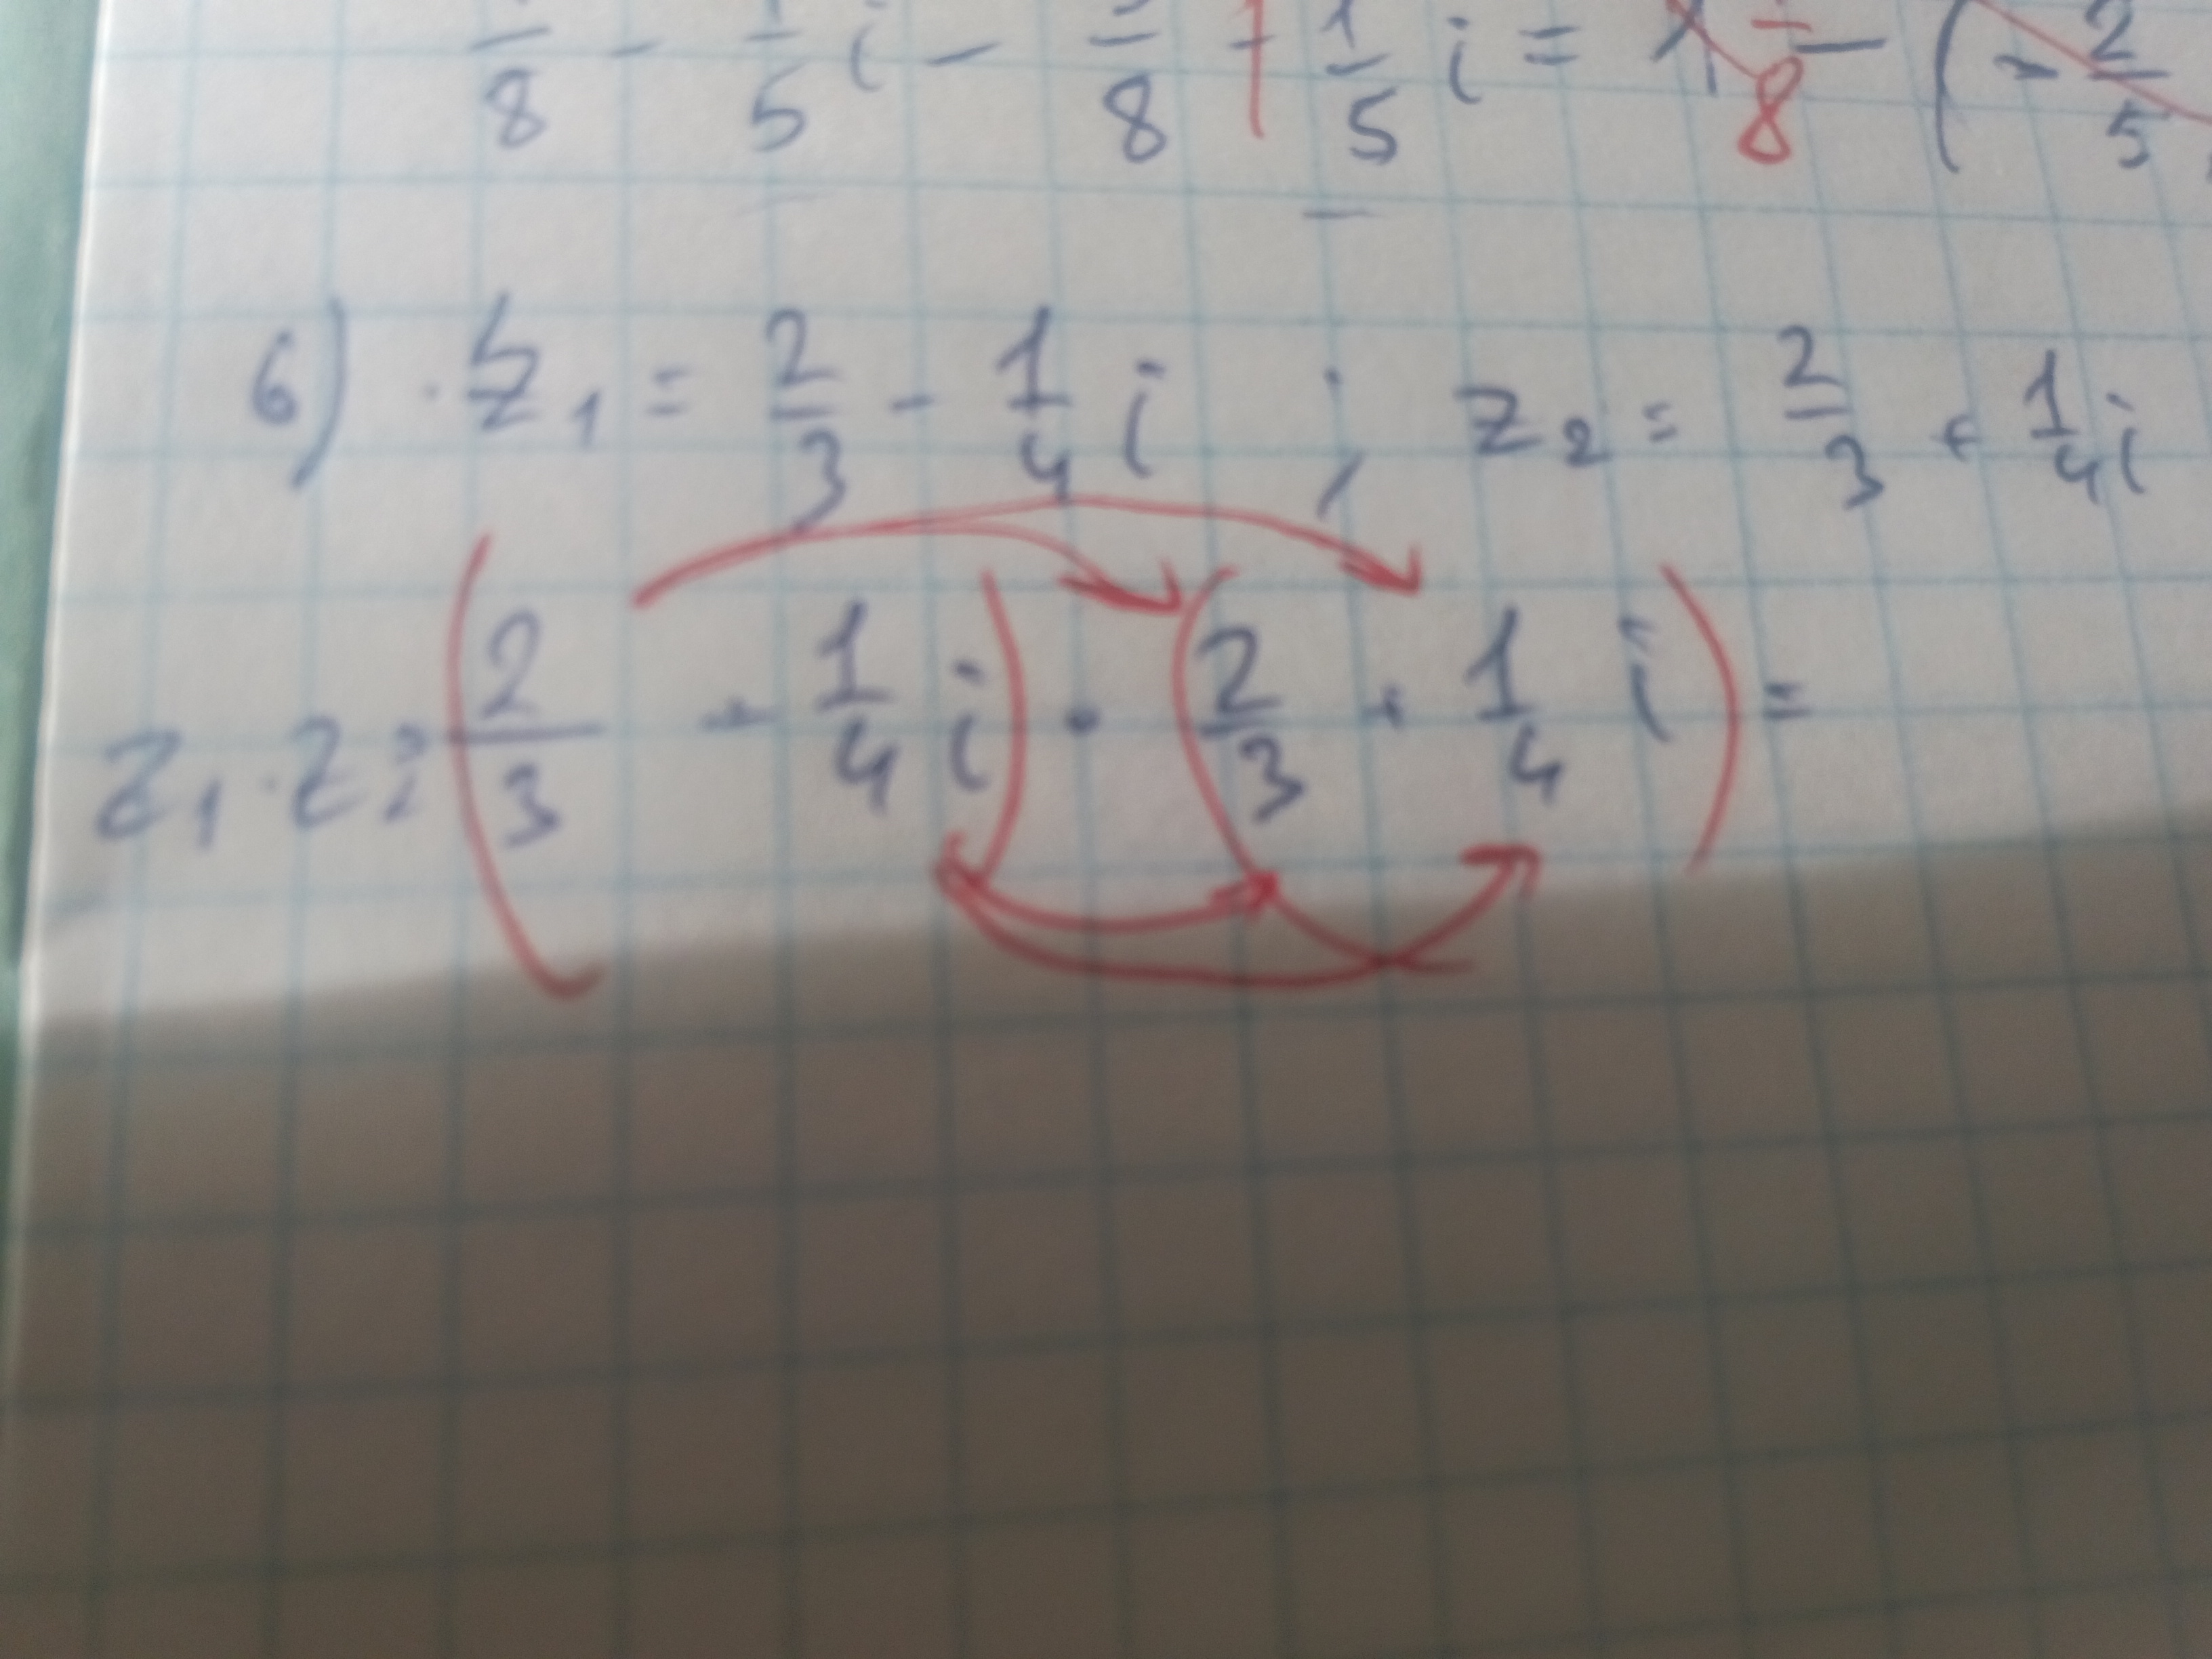 /8 - 1/5 i - /8 + 1/5 i = 1/8 - (- 2/5
6) z₁ = 2/3 - 1/4 i ; z₂ = 2/3 + 1/4 i
z₁ · z₂ = (2/3 - 1/4 i) · (2/3 + 1/4 i) =